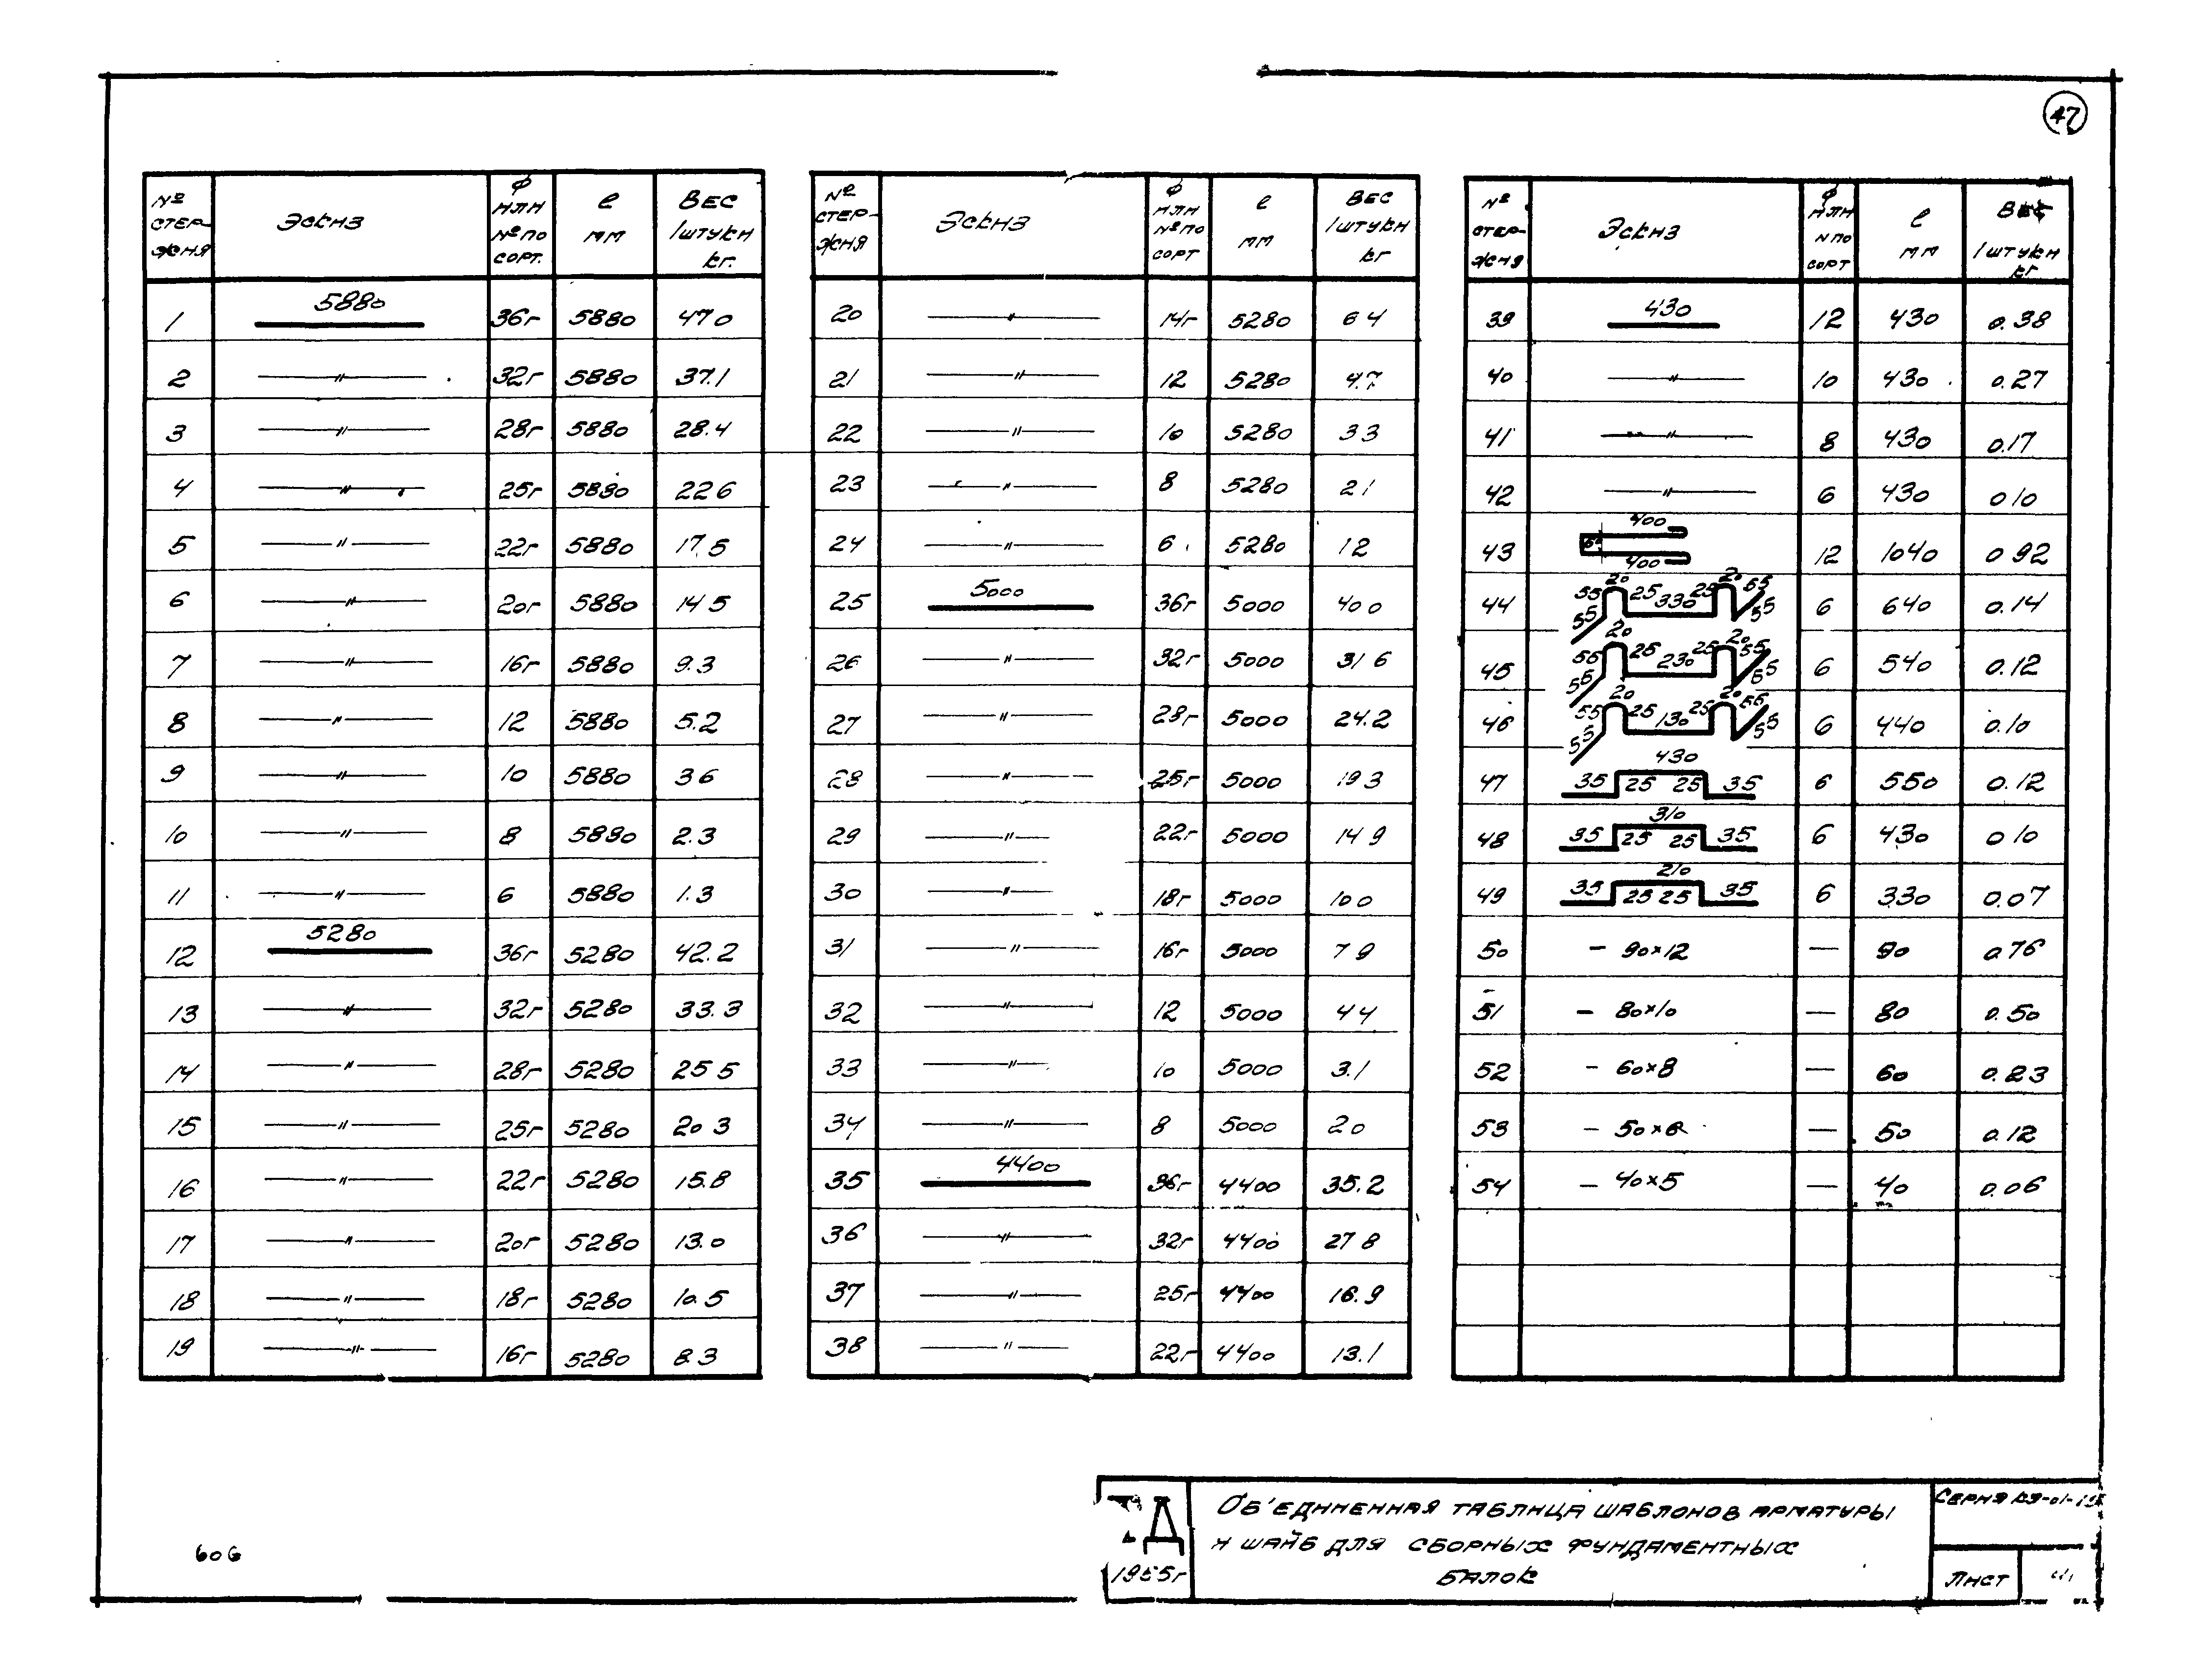 47
№ СТЕР- ЖНЯ ЭСКИЗ Ф ИЛИ № ПО СОРТ. ℓ мм ВЕС 1 ШТУКИ кг.
1 5880 36г 5880 47 0
2 —"— 32г 5880 37.1
3 —"— 28г 5880 28.4
4 —"— 25г 5880 22 6
5 —"— 22г 5880 17.5
6 —"— 20г 5880 14 5
7 —"— 16г 5880 9.3
8 —"— 12 5880 5.2
9 —"— 10 5880 3 6
10 —"— 8 5880 2.3
11 —"— 6 5880 1.3
12 5280 36г 5280 42.2
13 —"— 32г 5280 33.3
14 —"— 28г 5280 25 5
15 —"— 25г 5280 20 3
16 —"— 22г 5280 15.8
17 —"— 20г 5280 13.0
18 —"— 18г 5280 10.5
19 —"— 16г 5280 8.3
№ СТЕР- ЖНЯ ЭСКИЗ Ф ИЛИ № ПО СОРТ ℓ мм ВЕС 1 ШТУКИ кг
20 —"— 14г 5280 6 4
21 —"— 12 5280 4.7
22 —"— 10 5280 3 3
23 —"— 8 5280 2 1
24 —"— 6 5280 1 2
25 5000 36г 5000 40 0
26 —"— 32г 5000 31 6
27 —"— 28г 5000 24.2
28 —"— 25г 5000 19 3
29 —"— 22г 5000 14 9
30 —"— 18г 5000 10 0
31 —"— 16г 5000 7 9
32 —"— 12 5000 4 4
33 —"— 10 5000 3.1
34 —"— 8 5000 2 0
35 4400 36г 4400 35.2
36 —"— 32г 4400 27 8
37 —"— 25г 4400 16.9
38 —"— 22г 4400 13.1
№ СТЕР- ЖНЯ ЭСКИЗ Ф ИЛИ N ПО СОРТ ℓ мм ВЕС 1 ШТУКИ кг
39 430 12 430 0.38
40 —"— 10 430 0.27
41 —"— 8 430 0.17
42 —"— 6 430 0 10
43 400 400 12 1040 0 92
44 55 55 20 25 330 25 20 55 55 6 640 0.14
45 55 55 20 25 230 25 20 55 55 6 540 0.12
46 55 55 20 25 130 25 20 55 55 6 440 0.10
47 35 25 430 25 35 6 550 0.12
48 35 25 310 25 35 6 430 0 10
49 35 25 210 25 35 6 330 0.07
50 – 90×12 — 90 0.76
51 – 80×10 — 80 0.50
52 – 60×8 — 60 0.23
53 – 50×6 — 50 0.12
54 – 40×5 — 40 0.06
606
Д
1955г
ОБ'ЕДИНЕННАЯ ТАБЛИЦА ШАБЛОНОВ АРМАТУРЫ
И ШАЙБ ДЛЯ СБОРНЫХ ФУНДАМЕНТНЫХ
БАЛОК
СЕРИЯ КЭ-01-15
ЛИСТ